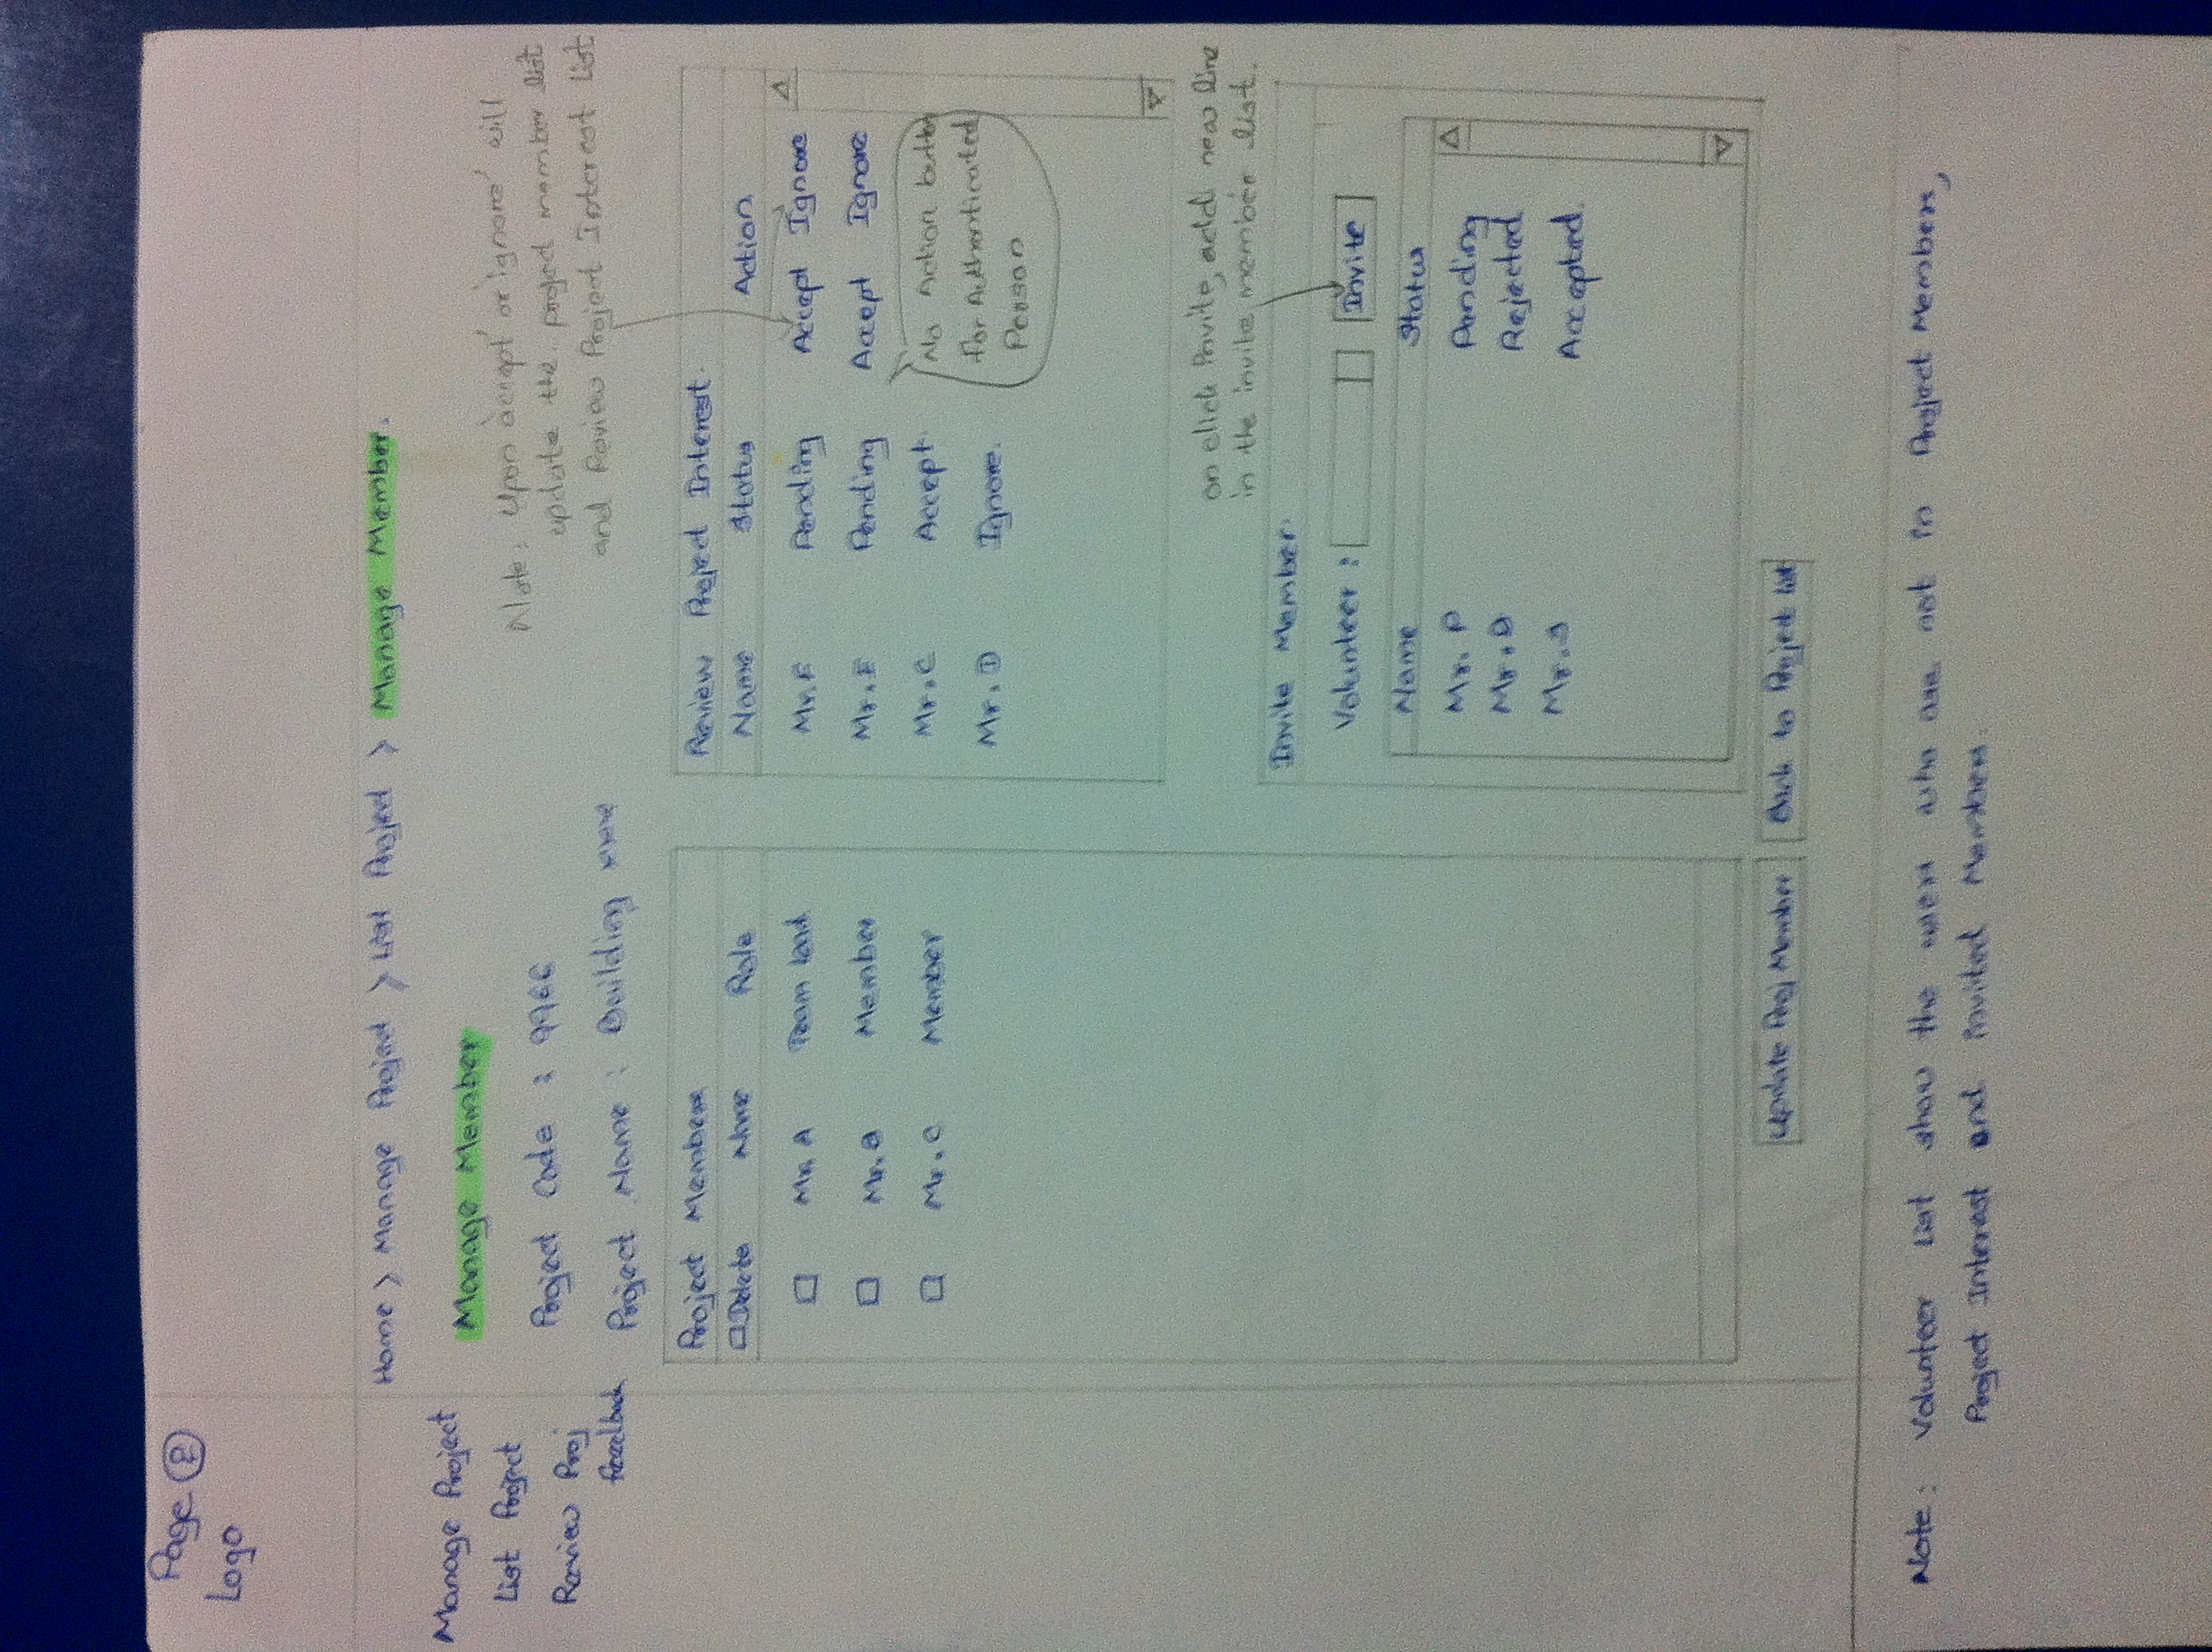 Page 2
Logo
Home > Manage Project > List Project > Manage Member.
Manage Project
List Project
Review Proj
feedback
Manage Member
Project Code : 9966
Project Name : Building xxxx
Note: Upon 'accept' or 'ignore' will
update the project member list
and Review Project Interest List
Project Members
Delete Name Role
Mr. A Team lead
Mr. B Member
Mr. C Member
Review Project Interest.
Name Status Action
Mr. F Pending Accept Ignore
Mr. E Pending Accept Ignore
Mr. C Accept.
Mr. D Ignore.
No Action button
for Authenticated
Person
on click Invite, add new line
in the invite member list.
Invite Member.
Volunteer : Invite
Name Status
Mr. P Pending
Mr. D Rejected
Mr. Accepted.
Update Proj Member Back to Project list
Note: Volunteer List show the users who are not in Project Members,
Project Interest and invited Members.